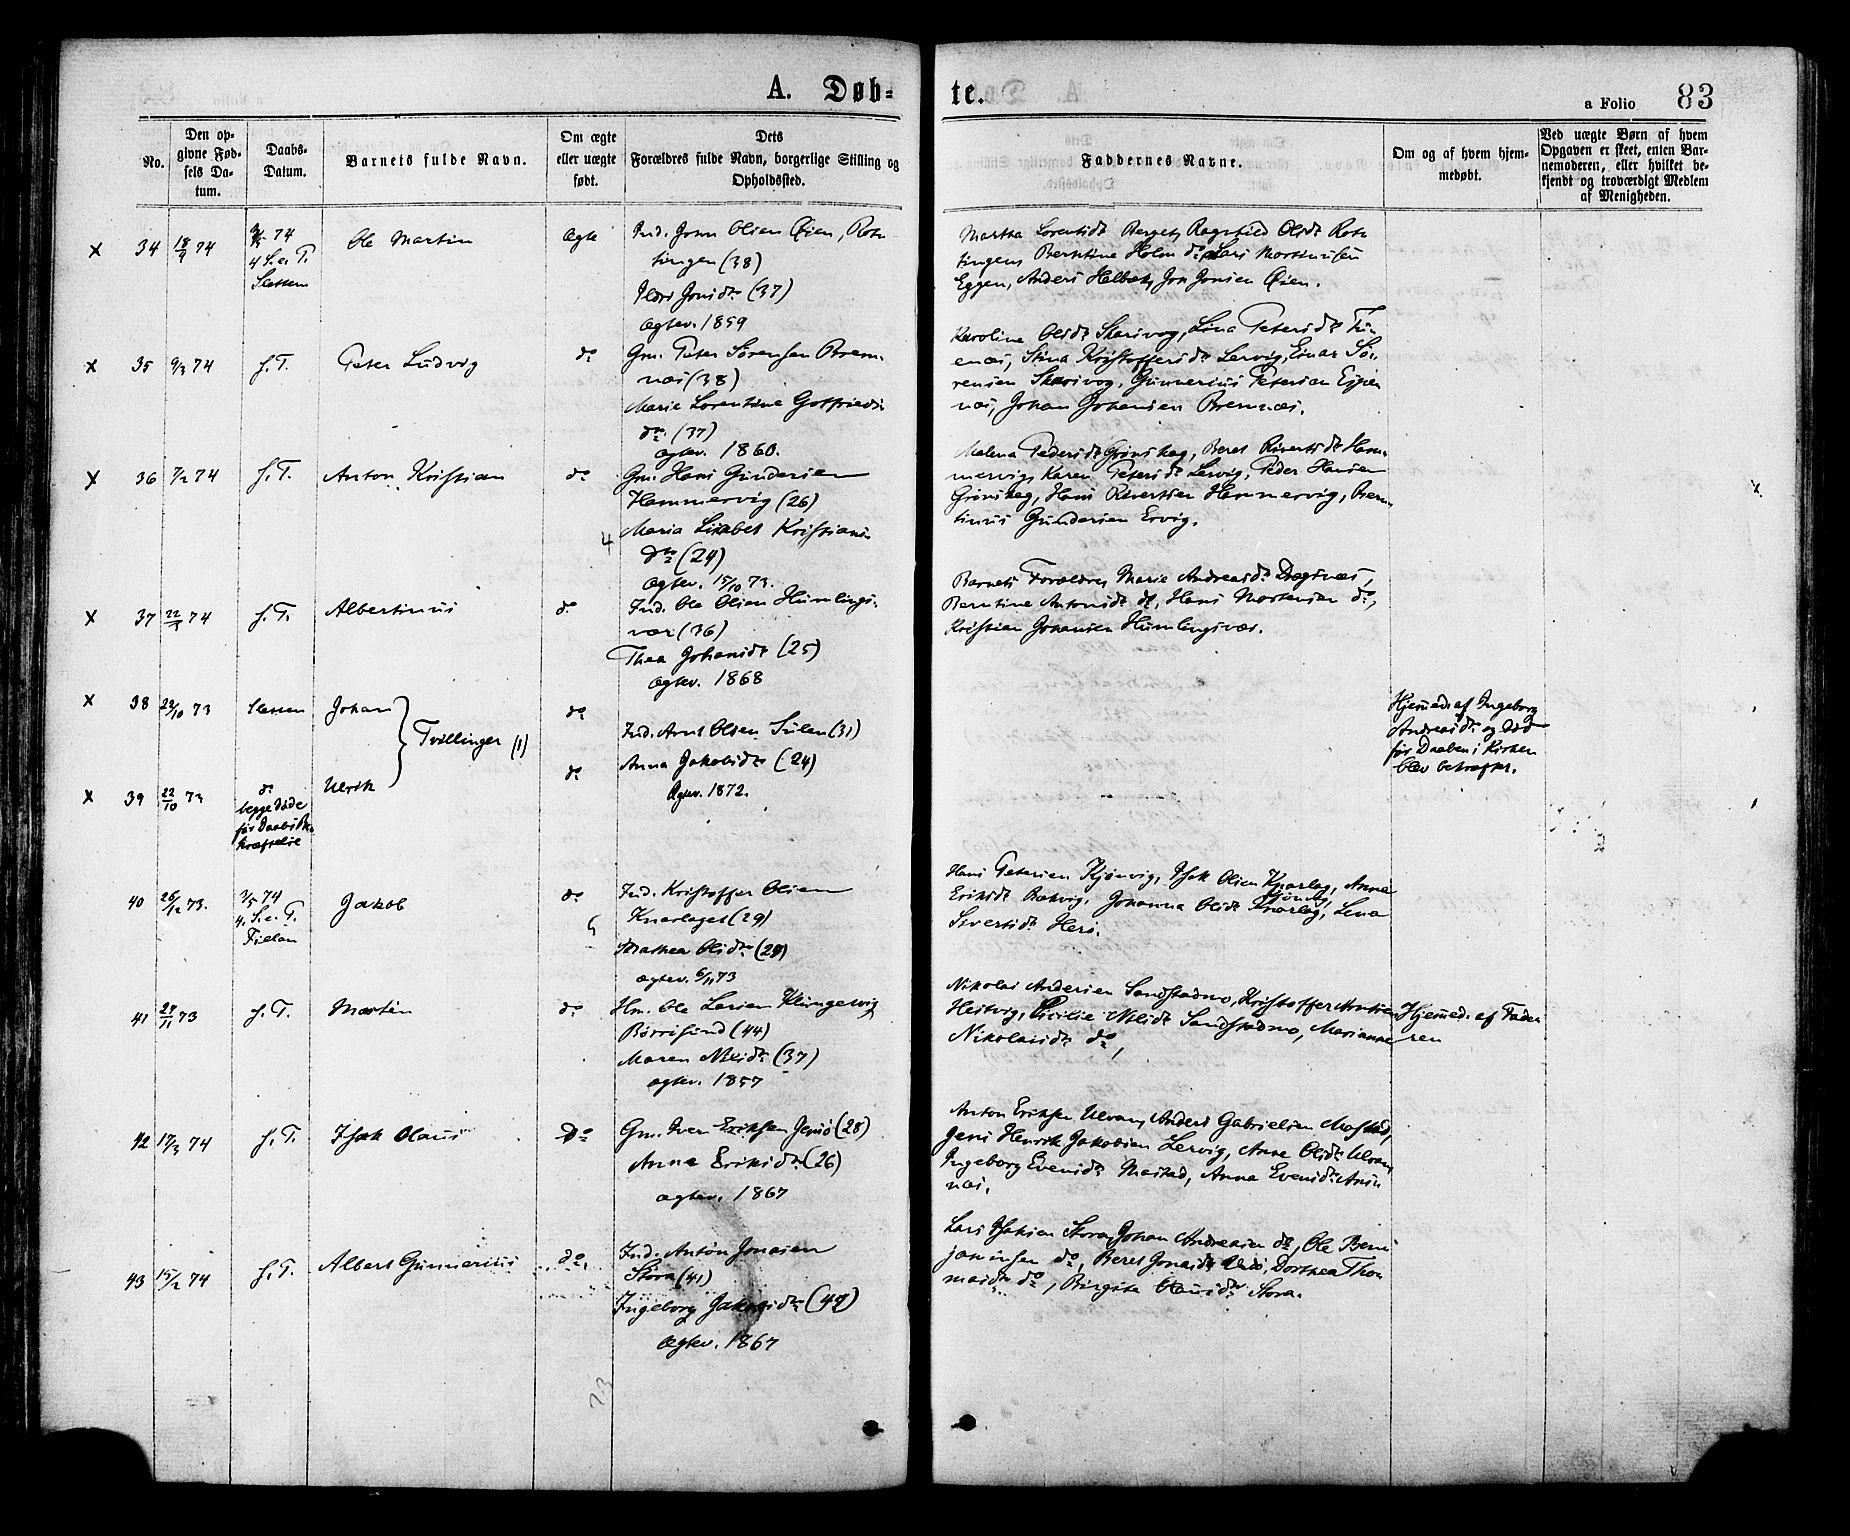 A. Døb=
te.
a Folio 83
No.
Den op-
givne Fød-
sels Da-
tum.
Daabs-
Datum.
Barnets fulde Navn.
Om ægte
eller uægte
født.
Dets
Forældres fulde Navn, borgerlige Stilling og
Opholdssted.
Faddernes Navne.
Om og af hvem hjem-
medøbt.
Ved uægte Børn af hvem
Opgaven er skeet, enten Bar-
nemoderen, eller hvilket be-
kjendt og troværdigt Medlem
af Menigheden.
x 34
74
4 S. e. T.
Ole Martin
Ægte
Ind. John Olsen Øien, Rot-
tingen (38)
Jonsdr (37)
Ægtev. 1859
Martha Lorentsdr Berget, Ragnhild Olsdr Rot-
tingen, Berntine Holm do, Lars Mortinusen
Eggen, Anders Helbek, Jon Jonsen Øien.
x 35 9/3 74
f. T.
Peter Ludvig
do
Gm. Peter Sørensen Brem-
næs (38)
Marie Lorentine Gotfrieds-
dr. (37)
ægtev. 1860.
Karoline Olsdr Skarsvog, Lina Petersdr
næs, Stina Kristoffersdr Lervig, Einar Sø-
rensen Skarsvog, Gunnerius Petersen Espe-
næs, Johan Johansen Bremnæs.
x 36 7/2 74
f. T.
Anton Kristian
do
Gm. Hans Gundersen
Hammervig (26)
4 Maria Lisabet Kristians-
dr (24)
Ægtev. 15/10 73.
Malena Pedersdr Grønskag, Beret Sivertsdr Ham-
mervig, Karen Petersdr Lervig, Peder Hansen
Grønskag, Hans Sivertsen Hammervig, Bern-
tinus Gundersen Ervig.
x 37
74
f. T.
Albertinus
do
Ind. Ole Olsen Humlings-
vær (36)
Thea Johansdr (25)
Ægtev. 1868
Barnets Forældre, Marie Andreasdr Dragsnæs,
Berntine Antonsdr do, Hans Mortensen do,
Kristian Johansen Humlingsvær.
x 38 22/10 73
Johan
Tvillinger (1)
do
Ind. Arnt Olsen Sulen (31)
Anna Jakobsdr (24)
Ægtev. 1872.
Hjemmed. af Ingeborg
Andreasdr og død
før Daaben i Kirken
blev bekræftet.
x 39 22/10 73
do
begge døde
før Daabs Be-
kræftelse
Ulrik
do
40 26/12 73.
3/5 74
4. S. e. P.
Fillan
Jakob
do
Ind. Kristoffer Olsen
Knarlaget (29)
Mathea Olsdr (29)
ægtev. 6/11 73
Hans Petersen Kjønvig, Isak Olsen Knarlag, Anna
Eriksdr Bækvig, Johanna Olsdr Knarlag, Lena
Sivertsdr
41 27/11 73
f. T.
Martin
do
Hm. Ole Larsen Klungervig
Børøsund (44)
Maren Nilsdr (37)
ægtev. 1857
Nikolai Andersen Sandstadmo, Kristoffer Arntsen
Hestvig, Cecilie Nilsdr Sandstadmo, Marianne
Nikolaisdr do,
Hjemmed. af Fade-
ren
42 17/3 74
f. T.
Isak Olaus
Do
Gm. Iver Eriksen Jensø (28)
Anna Eriksdr (26)
ægtev. 1867
Anton Eriksen Ulvan, Anders Gabrielsen Mastad,
Jens Henrik Jakobsen Lervig, Anne Olsdr Ulvan,
Ingeborg Evensdr Mastad, Anna Evensdr
næs.
43 15/2 74
f. T.
Albert Gunnerius
do.
Ind. Anton Jonasen
Stora (41)
Ingeborg Jakobsdr (47)
Ægtev. 1867
Lars Isaksen Stora, Johan Andreasen do, Ole Benj-
jaminsen do, Beret Jonasdr Ulvø, Dorthea Tho-
masdr do, Birgite Olausdr Stora.
23